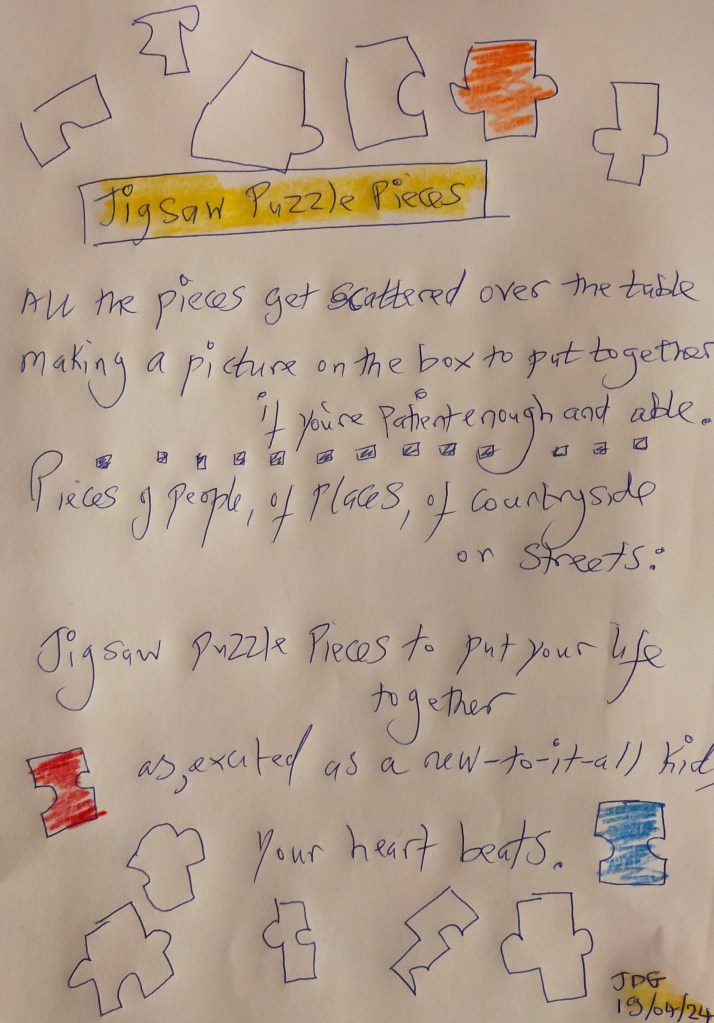 Jigsaw Puzzle Pieces
All the pieces get scattered over the table
making a picture on the box to put together
if you're patient enough and able.
Pieces of people, of places, of countryside
or streets:
Jigsaw Puzzle Pieces to put your life
together
as, excited as a new-to-it-all kid,
your heart beats.
JDG
19/04/24